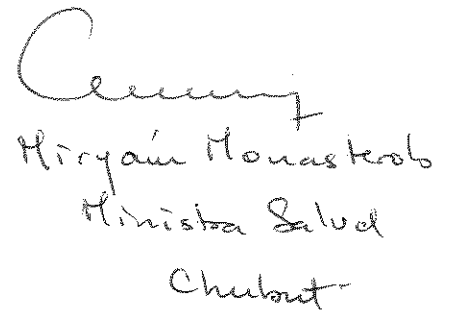 Miryam Monasterolo
Ministra Salud
Chubut